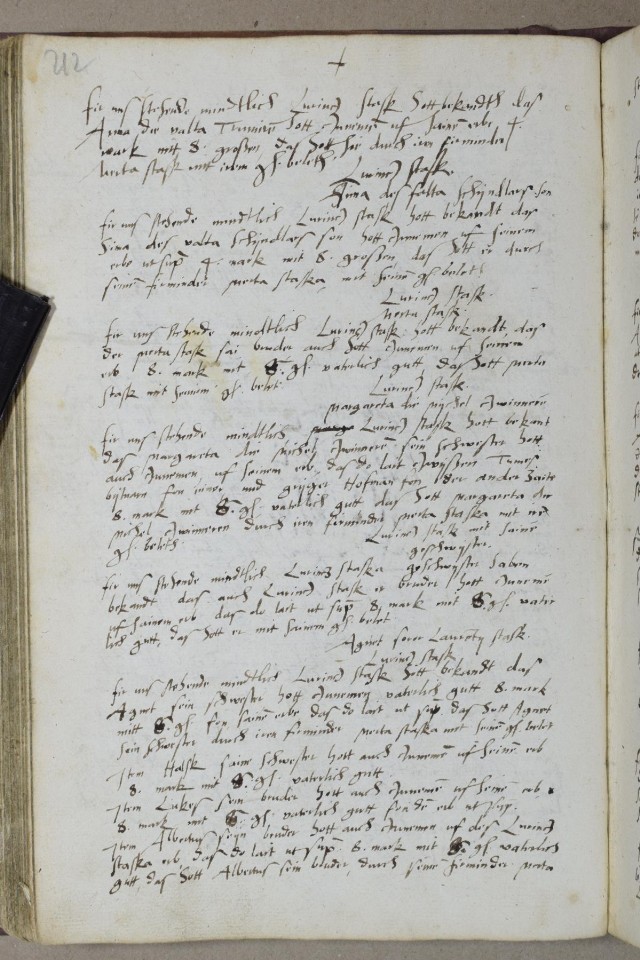 212
+
fir uns stehende mindtlich Lurincz stask hott bekandth das
Anna die valta hott Innemen uf seinē erbe 4.
mark mit 8. groschen das hott sie durch iren firminder
merta stask mit irem gſ. beleth
Lurincz stask.
Sima des falta schyndlars son
fir uns stehende mindtlich Lurincz stask hott bekandt das
Sima des valta schyndlars son hott Innemen uf seinem
erbe ut supᵃ 4. mark mit 8. groschen, das hott er durch
seinē firminder merta staska mit seinē gſ beleth
Lurincz stask.
merta stask.
fir uns stehende mindtlich Lurincz stask hott bekandt, das
der merta stask sai bruder auch hott Innemen uf seinem
erb 8. mark mit 8. gſ. vaterlich gutt das hott merta
stask mit seinem gſ. belet.
Lurincz stask.
margareta die michel
fir uns stehende mindtlich Lurincz stask hott bekant
das margareta die michel sein schwester hott
auch Innemen uf seinem erb, das do lait
und hofman fon der ander saite
8. mark mit 8. gſ. vaterlich gutt das hott margareta die
michel durch iren firminder merta staska mit irē
gſ. beleth.
Lurincz stask mit sainē
geschwyster.
fir uns stehende mindtlich Lurincz staska geschwyster haben
bekandt das auch Lurincz stask er bruder hott Innemē
uf sainem erb das do lait ut supᵃ 8 mark mit 8. gſ. vater
lich gutt, das hott er mit sainem gſ. belet
Agnet soror Laurēty stask.
Lurincz stask
fir uns stehende mindtlich Lurincz stask hott bekandt das
Agnet sein schwester hott Innemen vaterlich gutt 8. mark
mitt 8 gſ. fon sainē erbe das do lait ut sup das hott Agnet
sein schwester durch iren firminder merta staska mit seinē gſ belet
Item Halsk saine schwester hott auch Innemē uf seinē erb
8. mark mit 8. gſ. vaterlich gutt.
Item Lukes sein bruder hott auch Innemē uf seinē erb
8. mark mit 8. gſ. vaterlich gutt fon dē erb ut sup.
Item Albertus seyn bruder hott auch Innemen uf des Lurincz
staska erb, das do lait ut supᵃ. 8. mark mit 8. gſ vaterlich
gutt, das hott Albertus sein bruder, durch seinē firminder merta